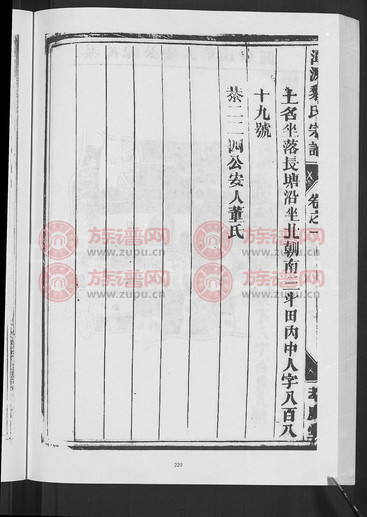 氏宗譜
卷之一
土名坐落長塘沿坐北朝南三斗田內中人字八百八
十九號
棻二二四公安人董氏
族谱网
www.zupu.cn
族谱网
www.zupu.cn
族谱网
www.zupu.cn
族谱网
www.zupu.cn
族谱网
www.zupu.cn
族谱网
www.zupu.cn
220